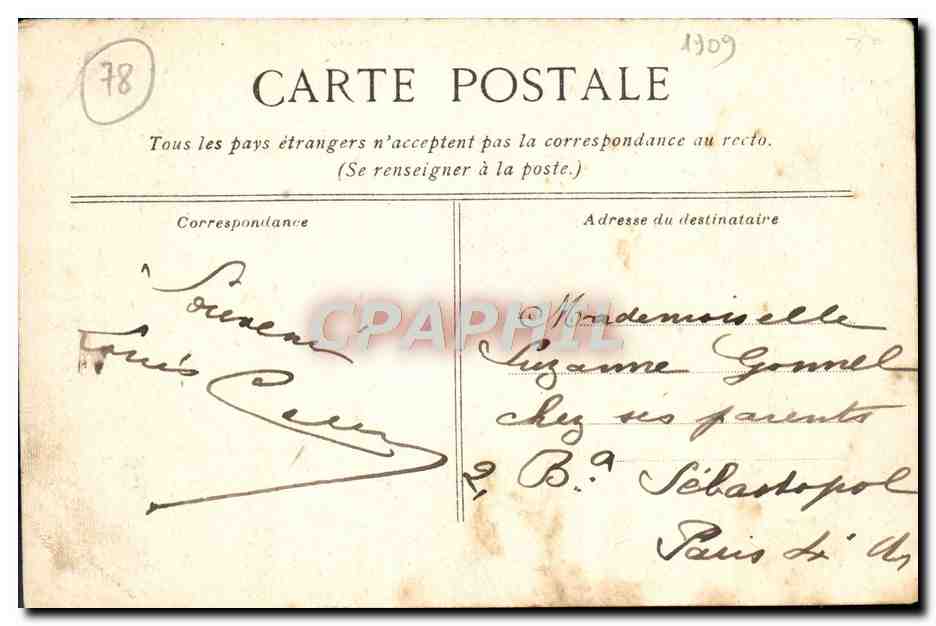 1909
78
CARTE POSTALE
Tous les pays étrangers n'acceptent pas la correspondance au recto.
(Se renseigner à la poste.)
Correspondance
Adresse du destinataire
Louis
CPAPHIL
Mademoiselle
Suzanne Gonnel
chez ses parents
2, Bd Sébastopol
Paris 4e Ar